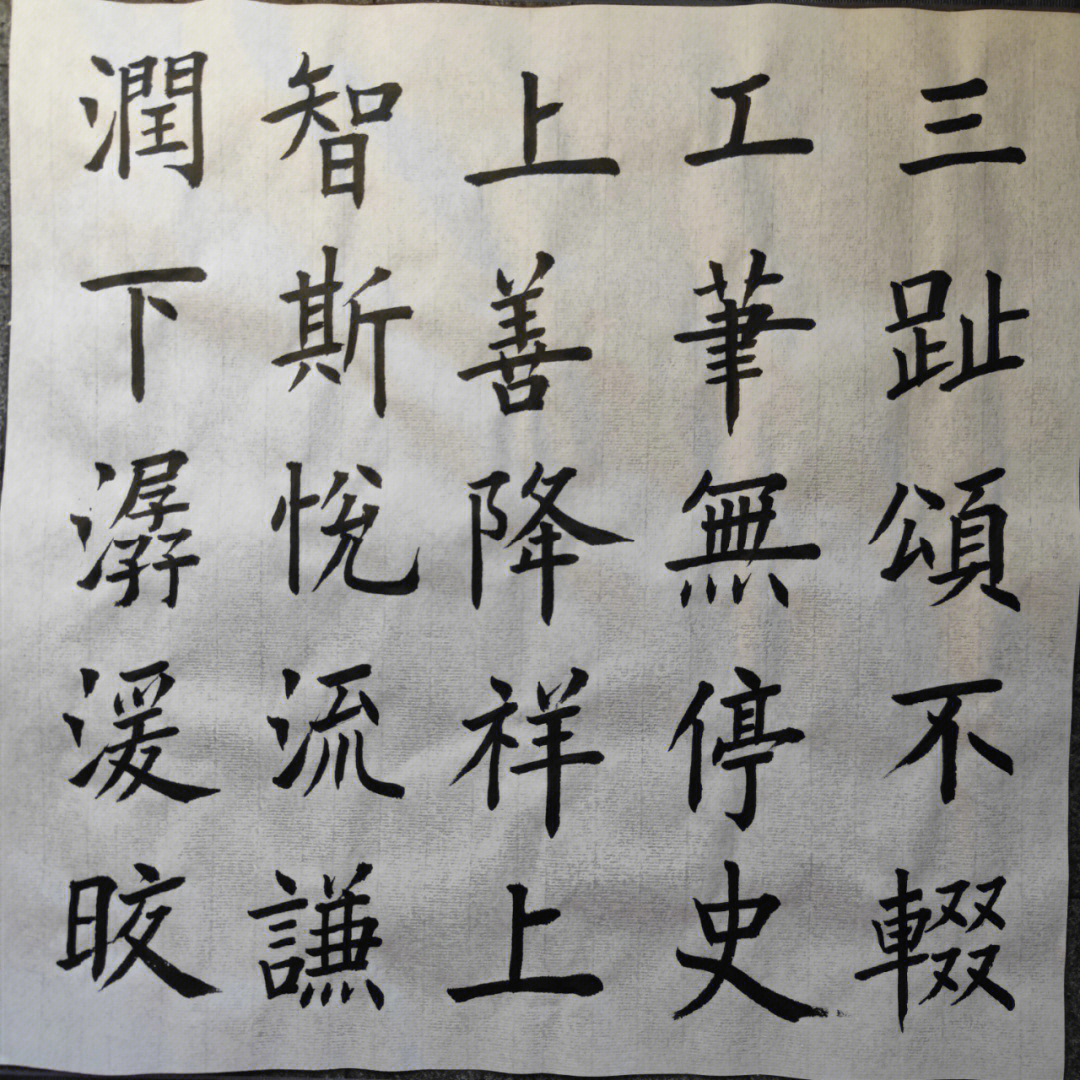 三趾頌不輟
工筆無停史
上善降祥上
智斯悅流謙
潤下潺湲晈